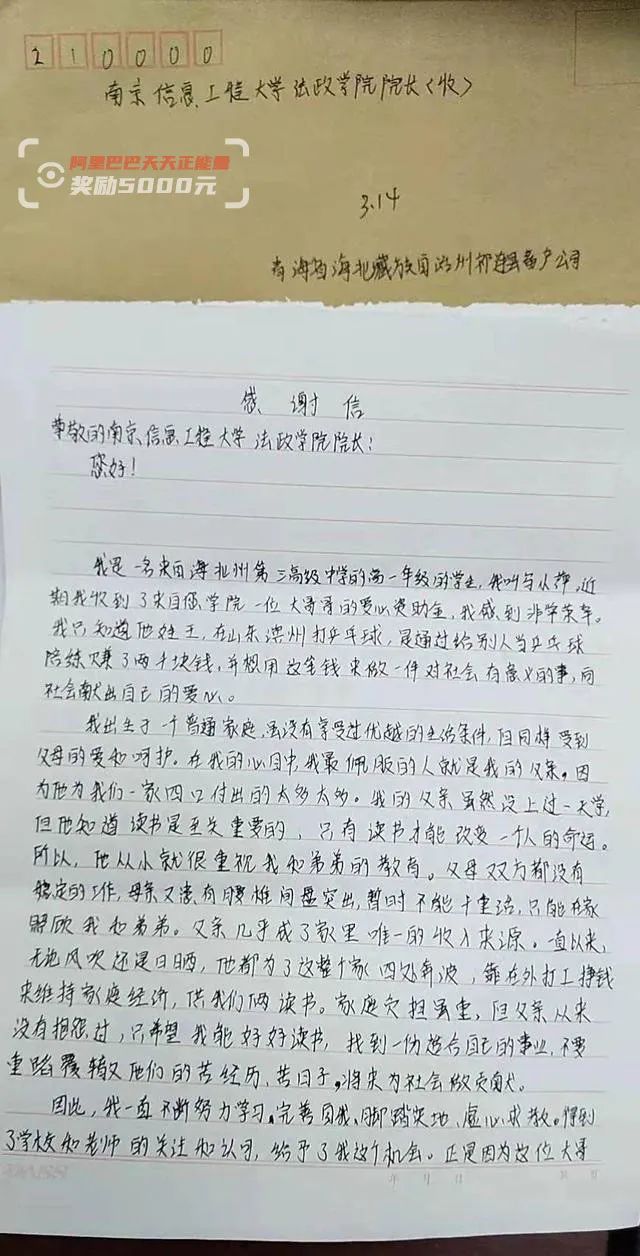 210000
南京信息工程大学法政学院院长(收)
阿里巴巴天天正能量
奖励5000元
3.14
青海省海北藏族自治州祁连县畜产公司
感谢信
尊敬的南京信息工程大学法政学院院长:
您好!
我是一名来自海北州第三高级中学的高一年级的学生,我叫马小萍,近
期我收到了来自您学院一位大哥哥的爱心资助金,我感到非常荣幸。
我只知道他姓王,在山东滨州打乒乓球,是通过给别人当乒乓球
陪练赚了两千块钱,并想用这笔钱来做一件对社会有意义的事,向
社会献出自己的爱心。
我出生于一个普通家庭,虽没有享受过优越的生活条件,但同样受到
父母的爱和呵护。在我的心目中,我最佩服的人就是我的父亲。因
为他为我们一家四口付出的太多太多。我的父亲虽然没上过一天学,
但他知道读书是至关重要的,只有读书才能改变一个人的命运。
所以,他从小就很重视我和弟弟的教育。父母双方都没有
稳定的工作,母亲又患有腰椎间盘突出,暂时不能干重活,只能在家
照顾我和弟弟。父亲几乎成了家里唯一的收入来源。一直以来,
无论风吹还是日晒,他都为了这整个家四处奔波,靠在外打工挣钱
来维持家庭经济,供我们俩读书。家庭负担虽重,但父亲从来
没有抱怨过,只希望我能好好读书,找到一份适合自己的事业,不要
重蹈覆辙他们的苦经历、苦日子,将来为社会做贡献。
因此,我一直不断努力学习,完善自我、脚踏实地、虚心求教。得到
了学校和老师的关注和认可,给予了我这个机会。正是因为这位大哥
年 月 日